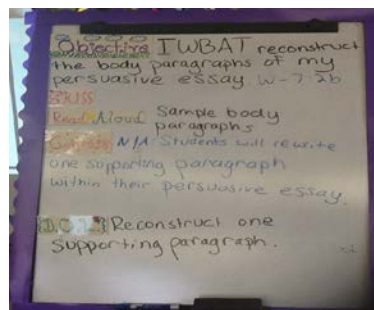 Objective IWBAT reconstruct
the body paragraphs of my
persuasive essay W-7.2b
Read Aloud Sample body
paragraphs
N/A: Students will rewrite
one supporting paragraph
within their persuasive essay.
Reconstruct one
supporting paragraph.